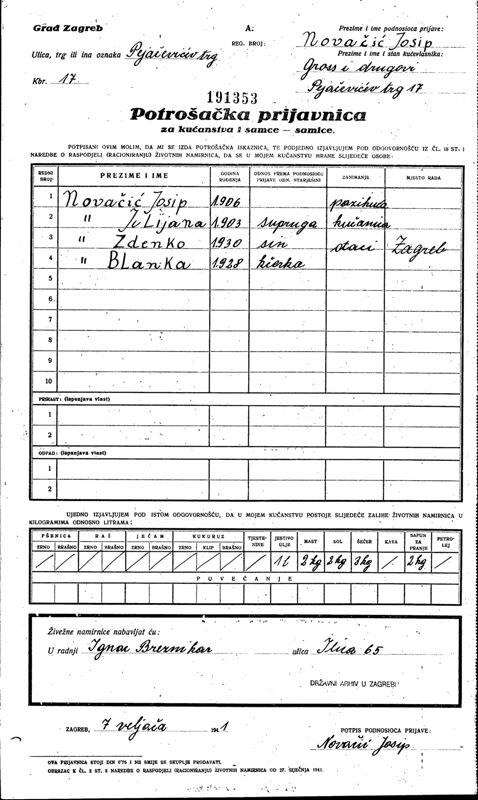 Grad Zagreb
A.
Prezime i ime podnosioca prijave:
Novačić Josip
REG. BROJ:
Prezime i ime i stan kućevlasnika:
Ulica, trg ili ina oznaka Pejačevićev trg
Gross i drugovi
Kbr. 17
Pejačevićev trg 17
191353
Potrošačka prijavnica
za kućanstva i samce — samice.
POTPISANI OVIM MOLIM, DA MI SE IZDA POTROŠAČKA ISKAZNICA, TE PODJEDNO IZJAVLJUJEM POD ODGOVORNOŠĆU IZ ČL. 18 ST. 1
NAREDBE O RASPODJELI (RACIONIRANJU) ŽIVOTNIH NAMIRNICA, DA SE U MOJEM KUĆANSTVU HRANE SLIJEDEĆE OSOBE:
REDNI BROJ PREZIME I IME GODINA ROĐENJA ODNOS PREMA PODNOSIOCU PRIJAVE ODN. STARJEŠINI ZANIMANJE MJESTO RADA
1 Novačić Josip 1906
2 " Julijana 1903 supruga kućanica
3 " Zdenko 1930 sin đaci Zagreb
4 " Blanka 1928 kćerka
5
6
7
8
9
10
PRIRAST: (Ispunjava vlast)
1
2
OTPAD: (Ispunjava vlast)
1
2
UJEDNO IZJAVLJUJEM POD ISTOM ODGOVORNOŠĆU, DA U MOJEM KUĆANSTVU POSTOJE SLIJEDEĆE ZALIHE ŽIVOTNIH NAMIRNICA U
KILOGRAMIMA ODNOSNO LITRAMA:
PŠENICA RAŽ JEČAM KUKURUZ TJESTENINE JESTIVO ULJE MAST SOL ŠEĆER KAVA SAPUN ZA PRANJE PETROLEJ
ZRNO BRAŠNO ZRNO BRAŠNO ZRNO BRAŠNO ZRNO KLIP BRAŠNO
/ / / / / / / / / / 1l 2kg 2kg 3kg / 2kg /
POVEĆANJE
Živežne namirnice nabavljat ću:
U radnji Ignac Breznikar ulica Ilica 65
DRŽAVNI ARHIV U ZAGREBU
ZAGREB, 7 veljača 1941
POTPIS PODNOSIOCA PRIJAVE:
Novačić Josip
OVA PRIJAVNICA STOJI DIN 0'75 I NE SMIJE SE SKUPLJE PRODAVATI.
OBRAZAC K ČL. 2 ST. 2 NAREDBE O RASPODJELI (RACIONIRANJU) ŽIVOTNIH NAMIRNICA OD 27. SIJEČNJA 1941.